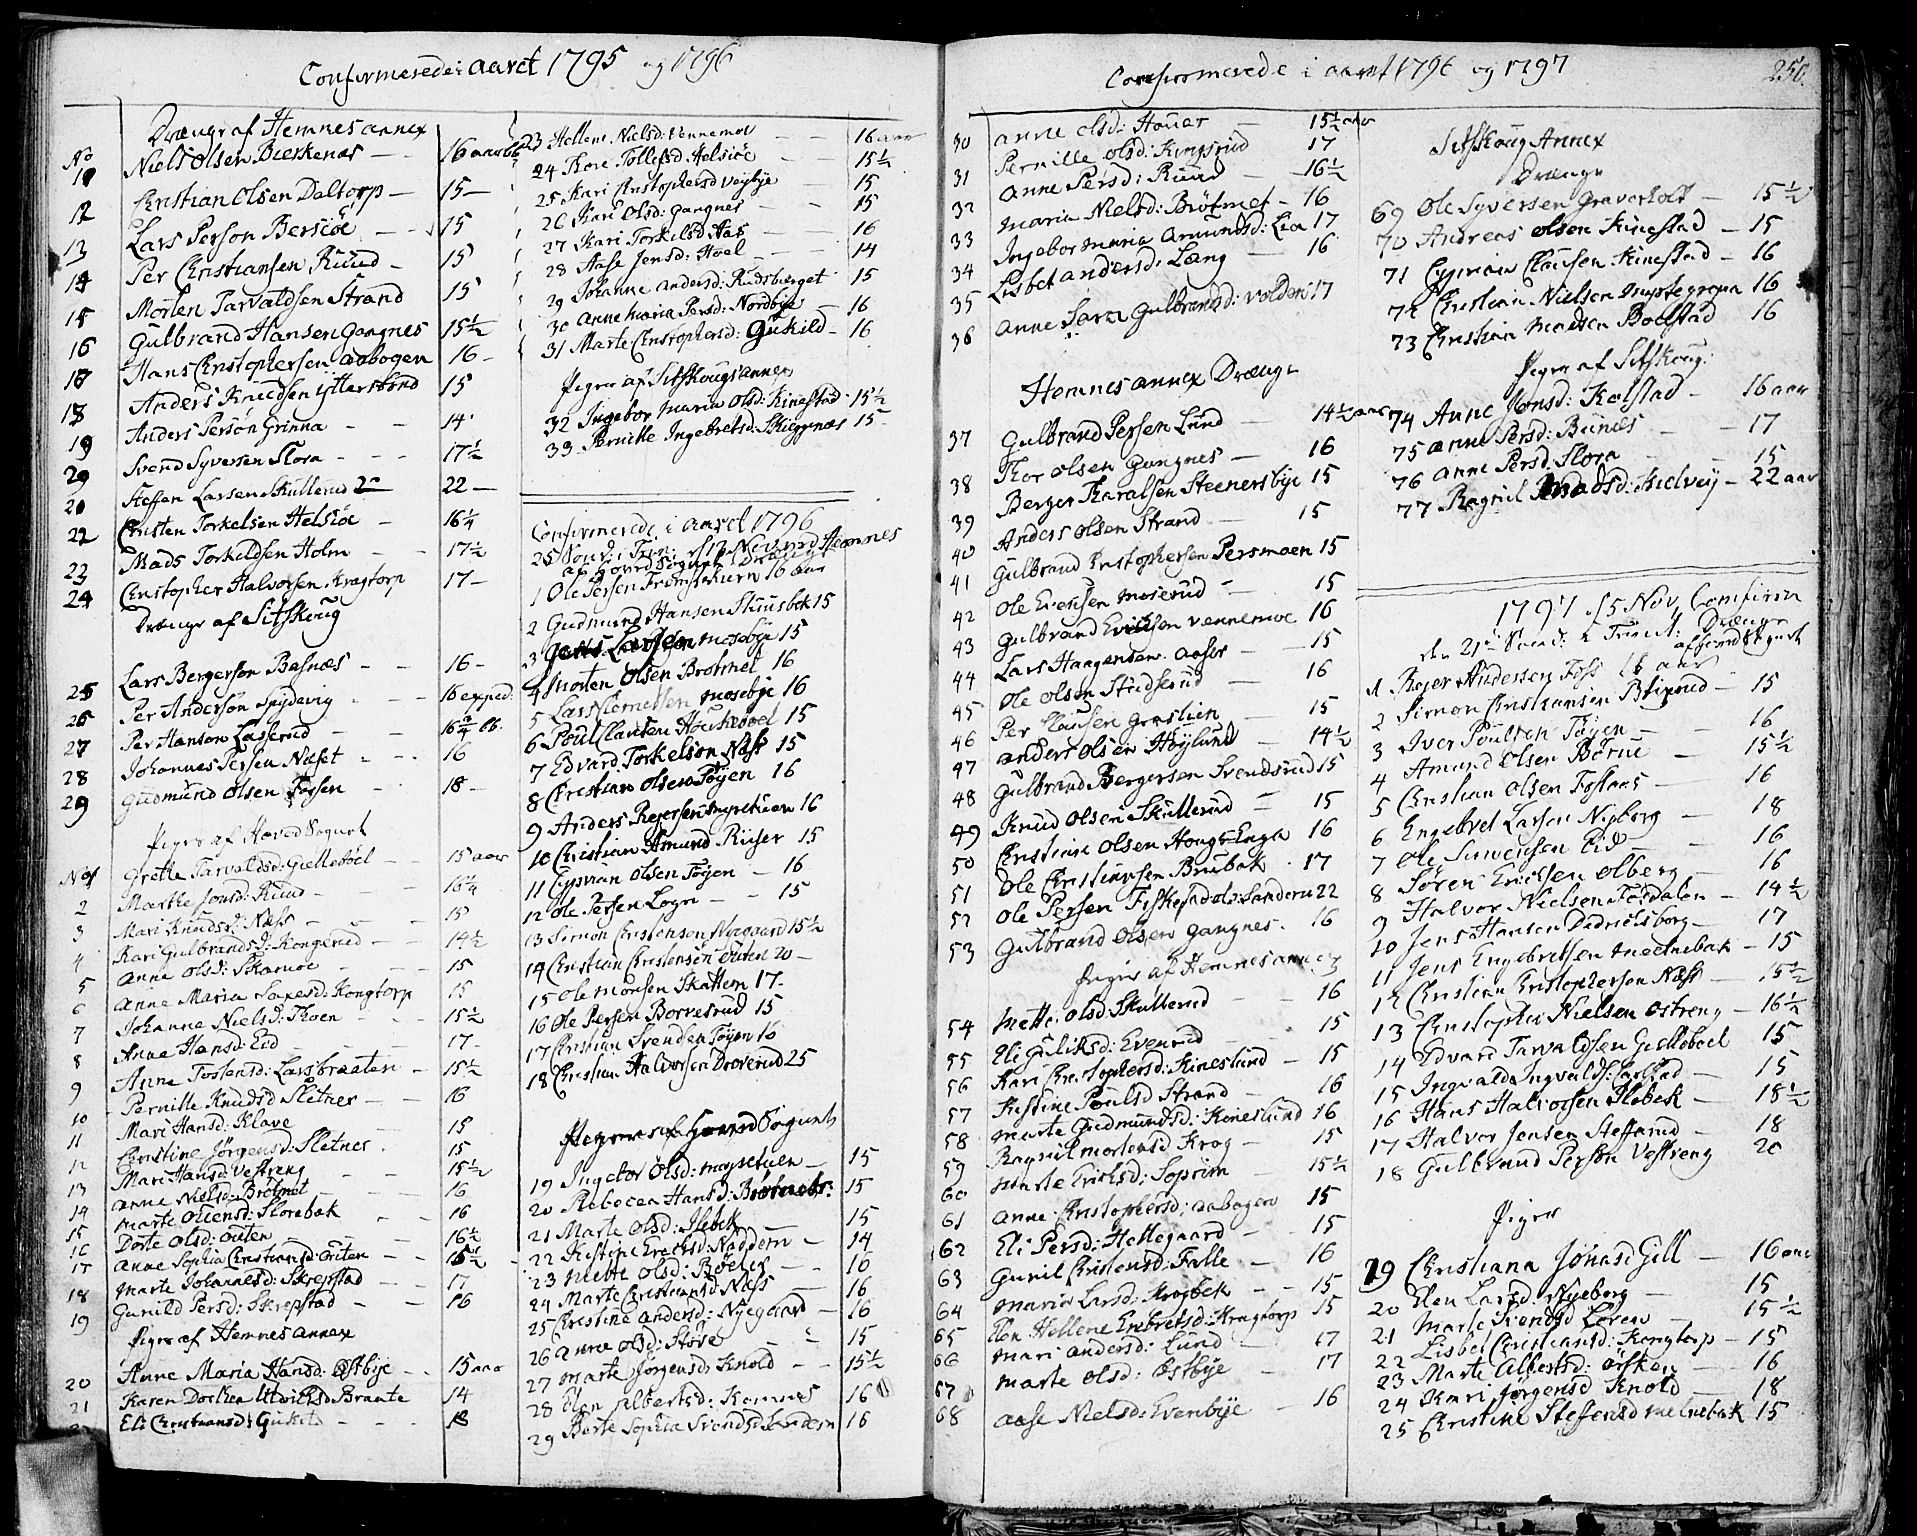 Confirmerede i aaret 1795 og 1796
Drænge af Hemnes annex
No
11 Niels Olsen Bierkenæs — 16 aar
12 Christian Olsen Daltorp — 15 —
13 Lars Person Bersiöe — 15
14 Per Christiansen Ruud — 15
15 Morten Tarvaldsen Strand 15
16 Gulbrand Hansen Gangnes 15½
17 Hans Christophersen Aabogen 16 —
18 Anders Knudsen 15
19 Anders Persön Grinna — 14
20 Svend Syversen Flora — 17½
21 Steffen Larsen Skullerud 22 —
22 Christen Torkelsen Helsiöe — 16¼
23 Mads Torkildsen Holm — 17½
24 Christopher Halvorsen Kragtorp 17 —
Drænge af Sitskoug
25 Lars Bergerson Basnæs — 16 —
26 Per Anderson Spydevig 16
27 Per Hanson Lasserud —
28 Johannes Persen Næset 16
29 Gudmund Olsen Fossen 18 —
Piger af Hoved Sognet
No 1 Grethe Tarvaldsd: Gulleböel 15 aar
2 Marthe Jonsd: Ruud 16¼
3 Mari Knudsd: Næss 15
4 Kari Gulbrandsd: Kongerud 14½
5 Anne Olsd: Skamoe 15
6 Anne Maria Saxesd: Kongtorp 15
7 Johanne Nielsd: Thoen 15½
8 Anne Hansd: Eid 17 —
9 Anne Tostensd: Larsbraaten 15½
10 Pernille Knudsd Sletner 16
11 Mari Hansd: Klave 15
12 Christine Jörgensd: Sletner 15
13 Mari Hansd: Vestreng 15½
14 Anne Nielsd: Brötmet 16
15 Marte Olensd: Florebak 16
16 Dorte Olsd: Outen 16½
17 Anne Sophia Christiansd: Outen 15½
18 Marte Johannesd: Skrepstad 17
19 Gunild Persd: Skrepstad 16
Piger af Hemnes annex
20 Anne Maria Hansd: Østbye 15 aar
21 Karen Dorthea Ulrichsd Braate 14
Eli Christiansd: 18
23 Hellene Nielsd: Vennemoe — 16 aar
24 Thore Tollefsd: Helsiöe — 15½
25 Kari Christophersd Veybye 15
26 Kari Olsd: Gangnes — 15
27 Kari Torkilsd Aas — 16
28 Aase Jensd: Hoel — 14
29 Johanne Andersd: Rudsberget 15
30 Anne Maria Persd: Nordbye — 16
31 Marte Christophersd: Guskild — 16
Piger af Sitskougs annex
32 Ingebor Maria Olsd: Kinestad 15½
33 Pernille Ingebretsd: Skieggenæs 15
Confirmerede i aaret 1796
25 Sönd: i Trin:
1 Ole Persen 16 aar
2 Gudmund Hansen Skuusbek 15
3 Jens Larssen Mosebye 15
4 Morten Olsen Brötmet 16
5 Lars Clemetsen Mosebye 16
6 Poul Clausen 15
7 Edvard Torkelson Næss 15
8 Christian Olsen Töyen 16
9 Anders Reiersen 16
10 Christian Amund Riiser 15
11 Cyprian Olsen Töyen — 16
12 Ole Persen Logn — 15
13 Simon Christensen Nyegaard 15½
14 Christian Christensön Outen 20 —
15 Ole Monsen Skattem 17 —
16 Ole Persen Borresrud 15
17 Christian Svendsen Töyen 16
18 Christian Halvorsen Droverud 25
Pigerne af Hoved Sognet
19 Ingebor Olsd: — 15
20 Rebecca Hansd: Brötmet: 15
21 Marte Olsd: Slebek 15
22 Kistine Erichsd: Naddern — 14
23 Mette Olsd: — 16
24 Marte Christiansd Næss 16
25 Christine Andersd: Nyegaard — 16
26 Anne Olsd: 15
27 Marte Jörgensd: Knold — 15½
28 Elen Albertsd: 16
29 Berte Sophia Svendsd: 16
Confirmerede i aaret 1796 og 1797
250.
30 Anne Olsd: Houer — 15½ aar
31 Pernille Olsd: Kingsrud 17
32 Anne Persd: Ruud — 16½
33 Maria Nielsd: Brötmet — 16
34 Ingebor Maria Amundsd: Lia 17
35 Lisbet Andersd: Læng — 16
36 Anne Sara Gulbrandsd: Volden 17
Hemnes annex Drænge
37 Gulbrand Persen Lund — 14½ aar
38 Thor Olsen Gangnes — 16
39 Berger Haralsen Steenersbye 15
40 Anders Olsen Strand — 15
41 Gulbrand Christophersen Persmoen 15
42 Ole Evensen Moserud — 15
43 Gulbrand Erichsen Vennemoe 16
44 Lars Haagensen Aaser — 15
45 Ole Olsen Studserud — 16
46 Per Clausen 15
47 Anders Olsen Höylund — 14½
48 Gulbrand Bergersen Svendsrud 15
49 Knud Olsen Skullerud — 15
50 Christian Olsen 16
51 Ole Christiansen Brubak 17
52 Ole Persen 22
53 Gulbrand Olsen Gangnes 16
Piger af Hemnes annex
54 Mette Olsd Skullerud — 16
55 Eli Guliksd: Evenrud — 15
56 Kari Christophersd: Kineslund — 15
57 Kistine Poulsd Strand — 16
58 Marte Gudmundsd: Kineslund 16
59 Ragnil Mortensd Krog — 15
60 Marte Erichsd: Soprim — 15½
61 Anne Christophersd: Aabogen 15
62 Eli Persd: Hellegaard — 15
63 Gunil Christensd: Falle — 16
64 Maria Larsd: Krogbek — 15
65 Elen Hellene Enbretsd: Kragtorp 15
66 Mari Andersd: Lund — 17
67 Marte Olsd: Østbye — 17
68 Aase Nielsd: Evenbye — 16
Sitskoug Annex
Drænge
69 Ole Syversen Graverholt — 15½
70 Andreas Olsen Kinestad — 15
71 Cyprian Clausen Kinestad — 16
72 Christian Nielsen 16
73 Christian Madsen Bolstad 16
Piger af Sitskoug:
74 Anne Jonsd: Kolstad — 16 aar
75 Anne Persd: Bunes — 17
76 Anne Persd. Flora — 15
77 Ragnil Madsd: Kielvey — 22 aar
1797 d 5 Nov. Confirm
den 21de Sönd: e Trinit: Drænge
af Hoved Sognet
1 Reier Andersen Foss 16 aar
2 Simon Christiansen — 15
3 Iver Poulsen Töyen — 16
4 Amund Olsen Börue 15½
5 Christian Olsen — 16
6 Engebret Larsen Nyborg — 18
7 Ole Simensen Eid — 16
8 Sören Erichsen Olberg — 16
9 Halvor Nielsen Fosdalen — 14½
10 Jens Hansen Didrichsborg — 17
11 Jens Engebretsen Meelnebak — 15
12 Christian Christophersen Næss — 15½
13 Christopher Nielsen Ostreng — 16½
14 Edvard Tarvaldsen Gulleboel 15
15 Ingvald Ingvalds: 15
16 Hans Halvorsen Slobek — 18½
17 Halvor Jensen Stefferud — 18
18 Gulbrand Person Vestreng 20
Piger
19 Christiana Jönasd Gill — 16 aar
20 Elen Larsd: Nyeborg — 15
21 Marte Svendsd Loren — 15½
22 Lisbet Christiansd: Kongtorp — 15
23 Marte Albertsd: Örsken — 16
24 Kari Jörgensd Knold — 18
25 Christine Steffensd Melnebak 15